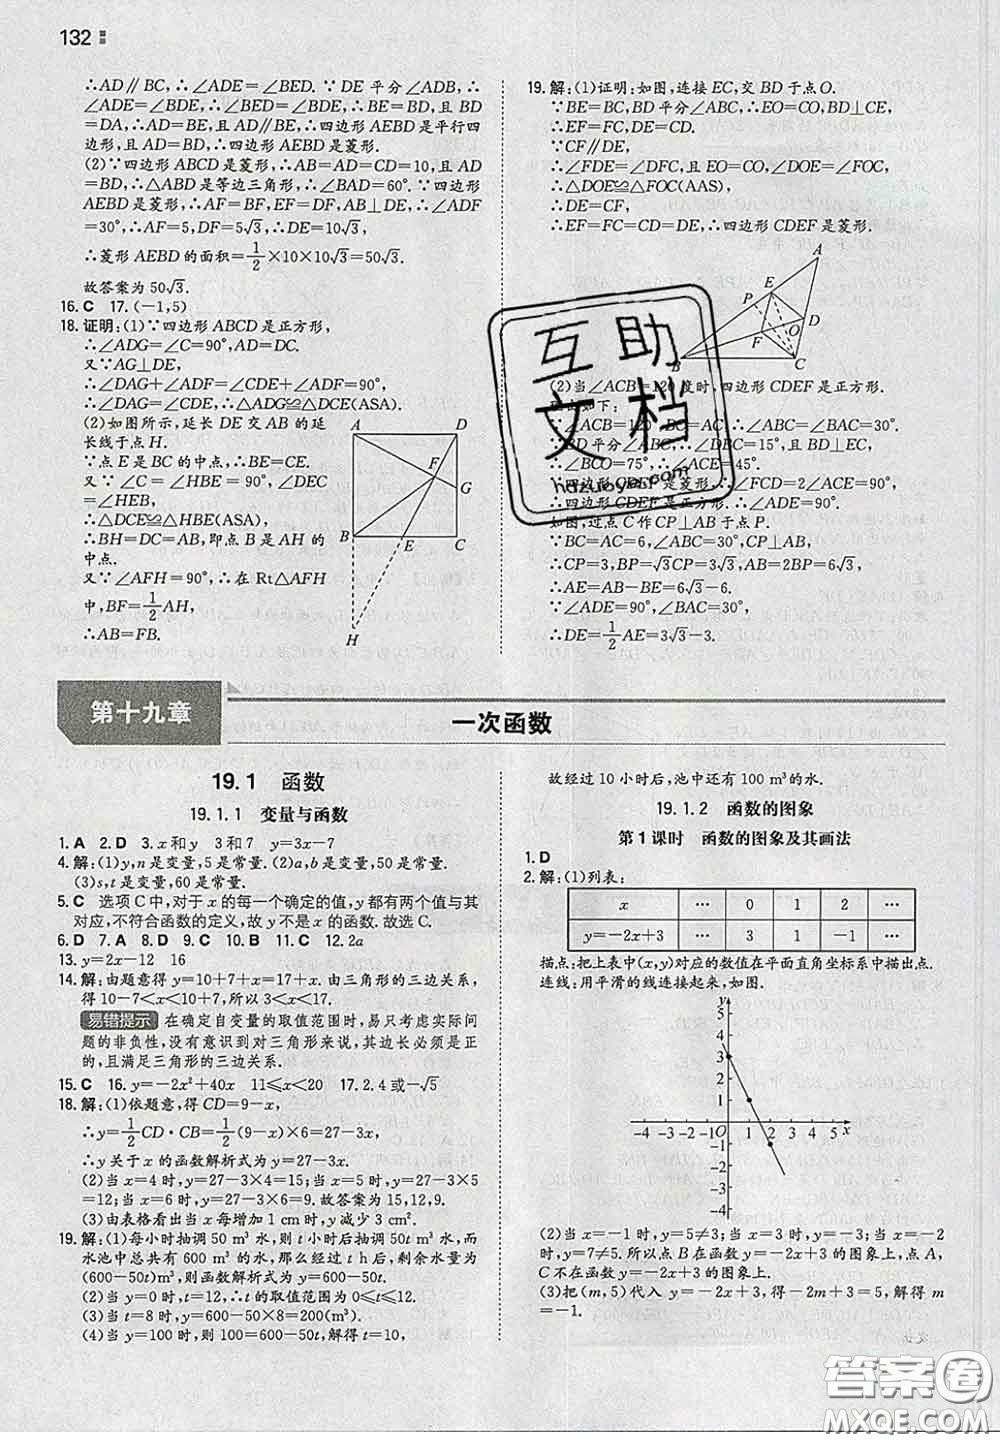 132
∴AD∥BC,∴∠ADE=∠BED. ∵DE平分∠ADB,∴
∠ADE=∠BDE,∴∠BED=∠BDE,∴BE=BD,且BD
=DA,∴AD=BE,且AD∥BE,∴四边形AEBD是平行四
边形,且AD=BD,∴四边形AEBD是菱形.
(2)∵四边形ABCD是菱形,∴AB=AD=CD=10,且AD
=BD,∴△ABD是等边三角形,∴∠BAD=60°. ∵四边形
AEBD是菱形,∴AF=BF,EF=DF,AB⊥DE,∠ADF
=30°,∴AF=5,DF=5√3,∴DE=10√3,
∴菱形AEBD的面积=1/2×10×10√3=50√3.
故答案为50√3.
16. C 17. (-1,5)
18. 证明:(1)∵四边形ABCD是正方形,
∴∠ADG=∠C=90°,AD=DC.
又∵AG⊥DE,
∴∠DAG+∠ADF=∠CDE+∠ADF=90°.
∴∠DAG=∠CDE,∴△ADG≌△DCE(ASA).
(2)如图所示,延长DE交AB的延
长线于点H.
∵点E是BC的中点,∴BE=CE.
又∵∠C=∠HBE=90°,∠DEC
=∠HEB,
∴△DCE≌△HBE(ASA),
∴BH=DC=AB,即点B是AH的
中点.
又∵∠AFH=90°,∴在Rt△AFH
中,BF=1/2AH,
∴AB=FB.
A D F G B E C H
19. 解:(1)证明:如图,连接EC,交BD于点O.
∵BE=BC,BD平分∠ABC,∴EO=CO,BD⊥CE,
∴EF=FC,DE=CD.
∵CF∥DE,
∴∠FDE=∠DFC,且EO=CO,∠DOE=∠FOC,
∴△DOE≌△FOC(AAS),
∴DE=CF,
∴EF=FC=CD=DE,∴四边形CDEF是菱形.
A E P D O F B C
(2)当∠ACB=120度时,四边形CDEF是正方形.
如下:
∵∠ACB=120° BC=AC,∴∠ABC=∠BAC=30°.
∵BD平分∠ABC,∴∠DBC=15°,且BD⊥EC,
∴∠BCO=75°,∴∠ACE=45°.
∵四边形CDEF是菱形,∴∠FCD=2∠ACE=90°.
∴四边形CDEF是正方形.∴∠ADE=90°.
如图,过点C作CP⊥AB于点P.
∵BC=AC=6,∠ABC=30°,CP⊥AB,
∴CP=3,BP=√3CP=3√3,AB=2BP=6√3,
∴AE=AB-BE=6√3-6.
∵∠ADE=90°,∠BAC=30°,
∴DE=1/2AE=3√3-3.
互助文档
hdzuoye.com
第十九章 一次函数
19.1 函数
19.1.1 变量与函数
1. A 2. D 3. x和y 3和7 y=3x-7
4. 解:(1)y,n是变量,5是常量. (2)a,b是变量,50是常量.
(3)s,t是变量,60是常量.
5. C 选项C中,对于x的每一个确定的值,y都有两个值与其
对应,不符合函数的定义,故y不是x的函数.故选C.
6. D 7. A 8. D 9. C 10. B 11. C 12. 2a
13. y=2x-12 16
14. 解:由题意得y=10+7+x=17+x. 由三角形的三边关系,
得10-7<x<10+7,所以3<x<17.
易错提示 在确定自变量的取值范围时,易只考虑实际问
题的非负性,没有意识到对三角形来说,其边长必须是正的,
且满足三角形的三边关系.
15. C 16. y=-2x²+40x 11≤x<20 17. 2,4或-√5
18. 解:(1)依题意,得CD=9-x,
∴y=1/2CD·CB=1/2(9-x)×6=27-3x,
∴y关于x的函数解析式为y=27-3x.
(2)当x=4时,y=27-3×4=15;当x=5时,y=27-3×5
=12;当x=6时,y=27-3×6=9. 故答案为15,12,9.
(3)由表格看出当x每增加1 cm时,y减少3 cm².
19. 解:(1)每小时抽调50 m³水,则t小时后抽调50t m³水,而
水池中总共有600 m³的水,那么经过t h后,剩余水量为
(600-50t)m³,则函数解析式为y=600-50t.
(2)当y=0时,t=12,∴t的取值范围为0≤t≤12.
(3)当t=8时,y=600-50×8=200(m³).
(4)当y=100时,则100=600-50t,解得t=10,
故经过10小时后,池中还有100 m³的水.
19.1.2 函数的图象
第1课时 函数的图象及其画法
1. D
2. 解:(1)列表:
x … 0 1 2 …
y=-2x+3 … 3 1 -1 …
描点:把上表中(x,y)对应的数值在平面直角坐标系中描出点.
连线:用平滑的线连接起来,如图.
y 5 4 3 2 1 O -4 -3 -2 -1 1 2 3 4 5 x -1 -2 -3 -4
(2)当x=-1时,y=5≠3;当x=3时,y=-3;当x=-2
时,y=7≠5. 所以点B在函数y=-2x+3的图象上,点A,
C不在函数y=-2x+3的图象上.
(3)把(m,5)代入y=-2x+3,得-2m+3=5,解得m
=-1.
答案圈
MXQE.COM